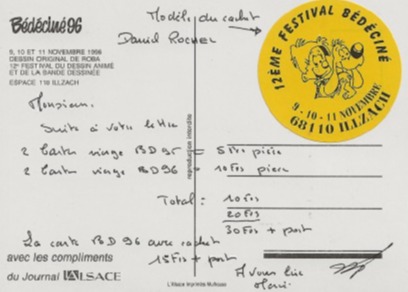 Bédéciné 96
9, 10 ET 11 NOVEMBRE 1996
DESSIN ORIGINAL DE ROBA
12e FESTIVAL DU DESSIN ANIMÉ
ET DE LA BANDE DESSINÉE
ESPACE 110 ILLZACH
Modèle du cachet
David
12ÈME FESTIVAL BÉDÉCINÉ
9 - 10 - 11 NOVEMBRE
68110 ILLZACH
Monsieur.
Suite à votre lettre
2 Cartes vierge BD95 = 5Frs pièce
2 Cartes vierge BD96 = 10Frs pièce
Total: 10Frs
20Frs
30Frs + port
La carte BD96 avec cachet
15Frs + port
A vous lire
Merci.
reproduction interdite
avec les compliments
du Journal L'ALSACE
L'Alsace Imprimés Mulhouse